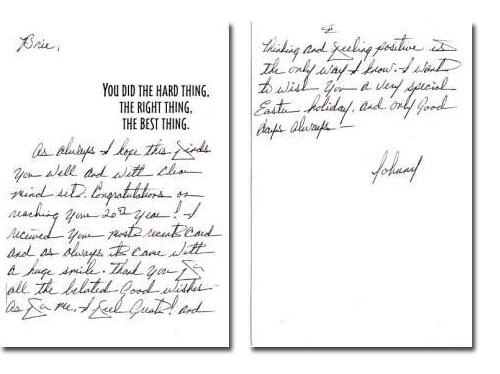 Brie,
YOU DID THE HARD THING,
THE RIGHT THING,
THE BEST THING.
As always I hope this finds
you well and with clear
mind set. Congratulations on
reaching your 20th year! I
received your most recent card
and as always it came with
a huge smile. Thank you for
all the belated good wishes
as for me, I feel Great! and
thinking and feeling positive is
the only way I know. I want
to wish you a very special
Easter holiday, and only Good
days always —
Johnny